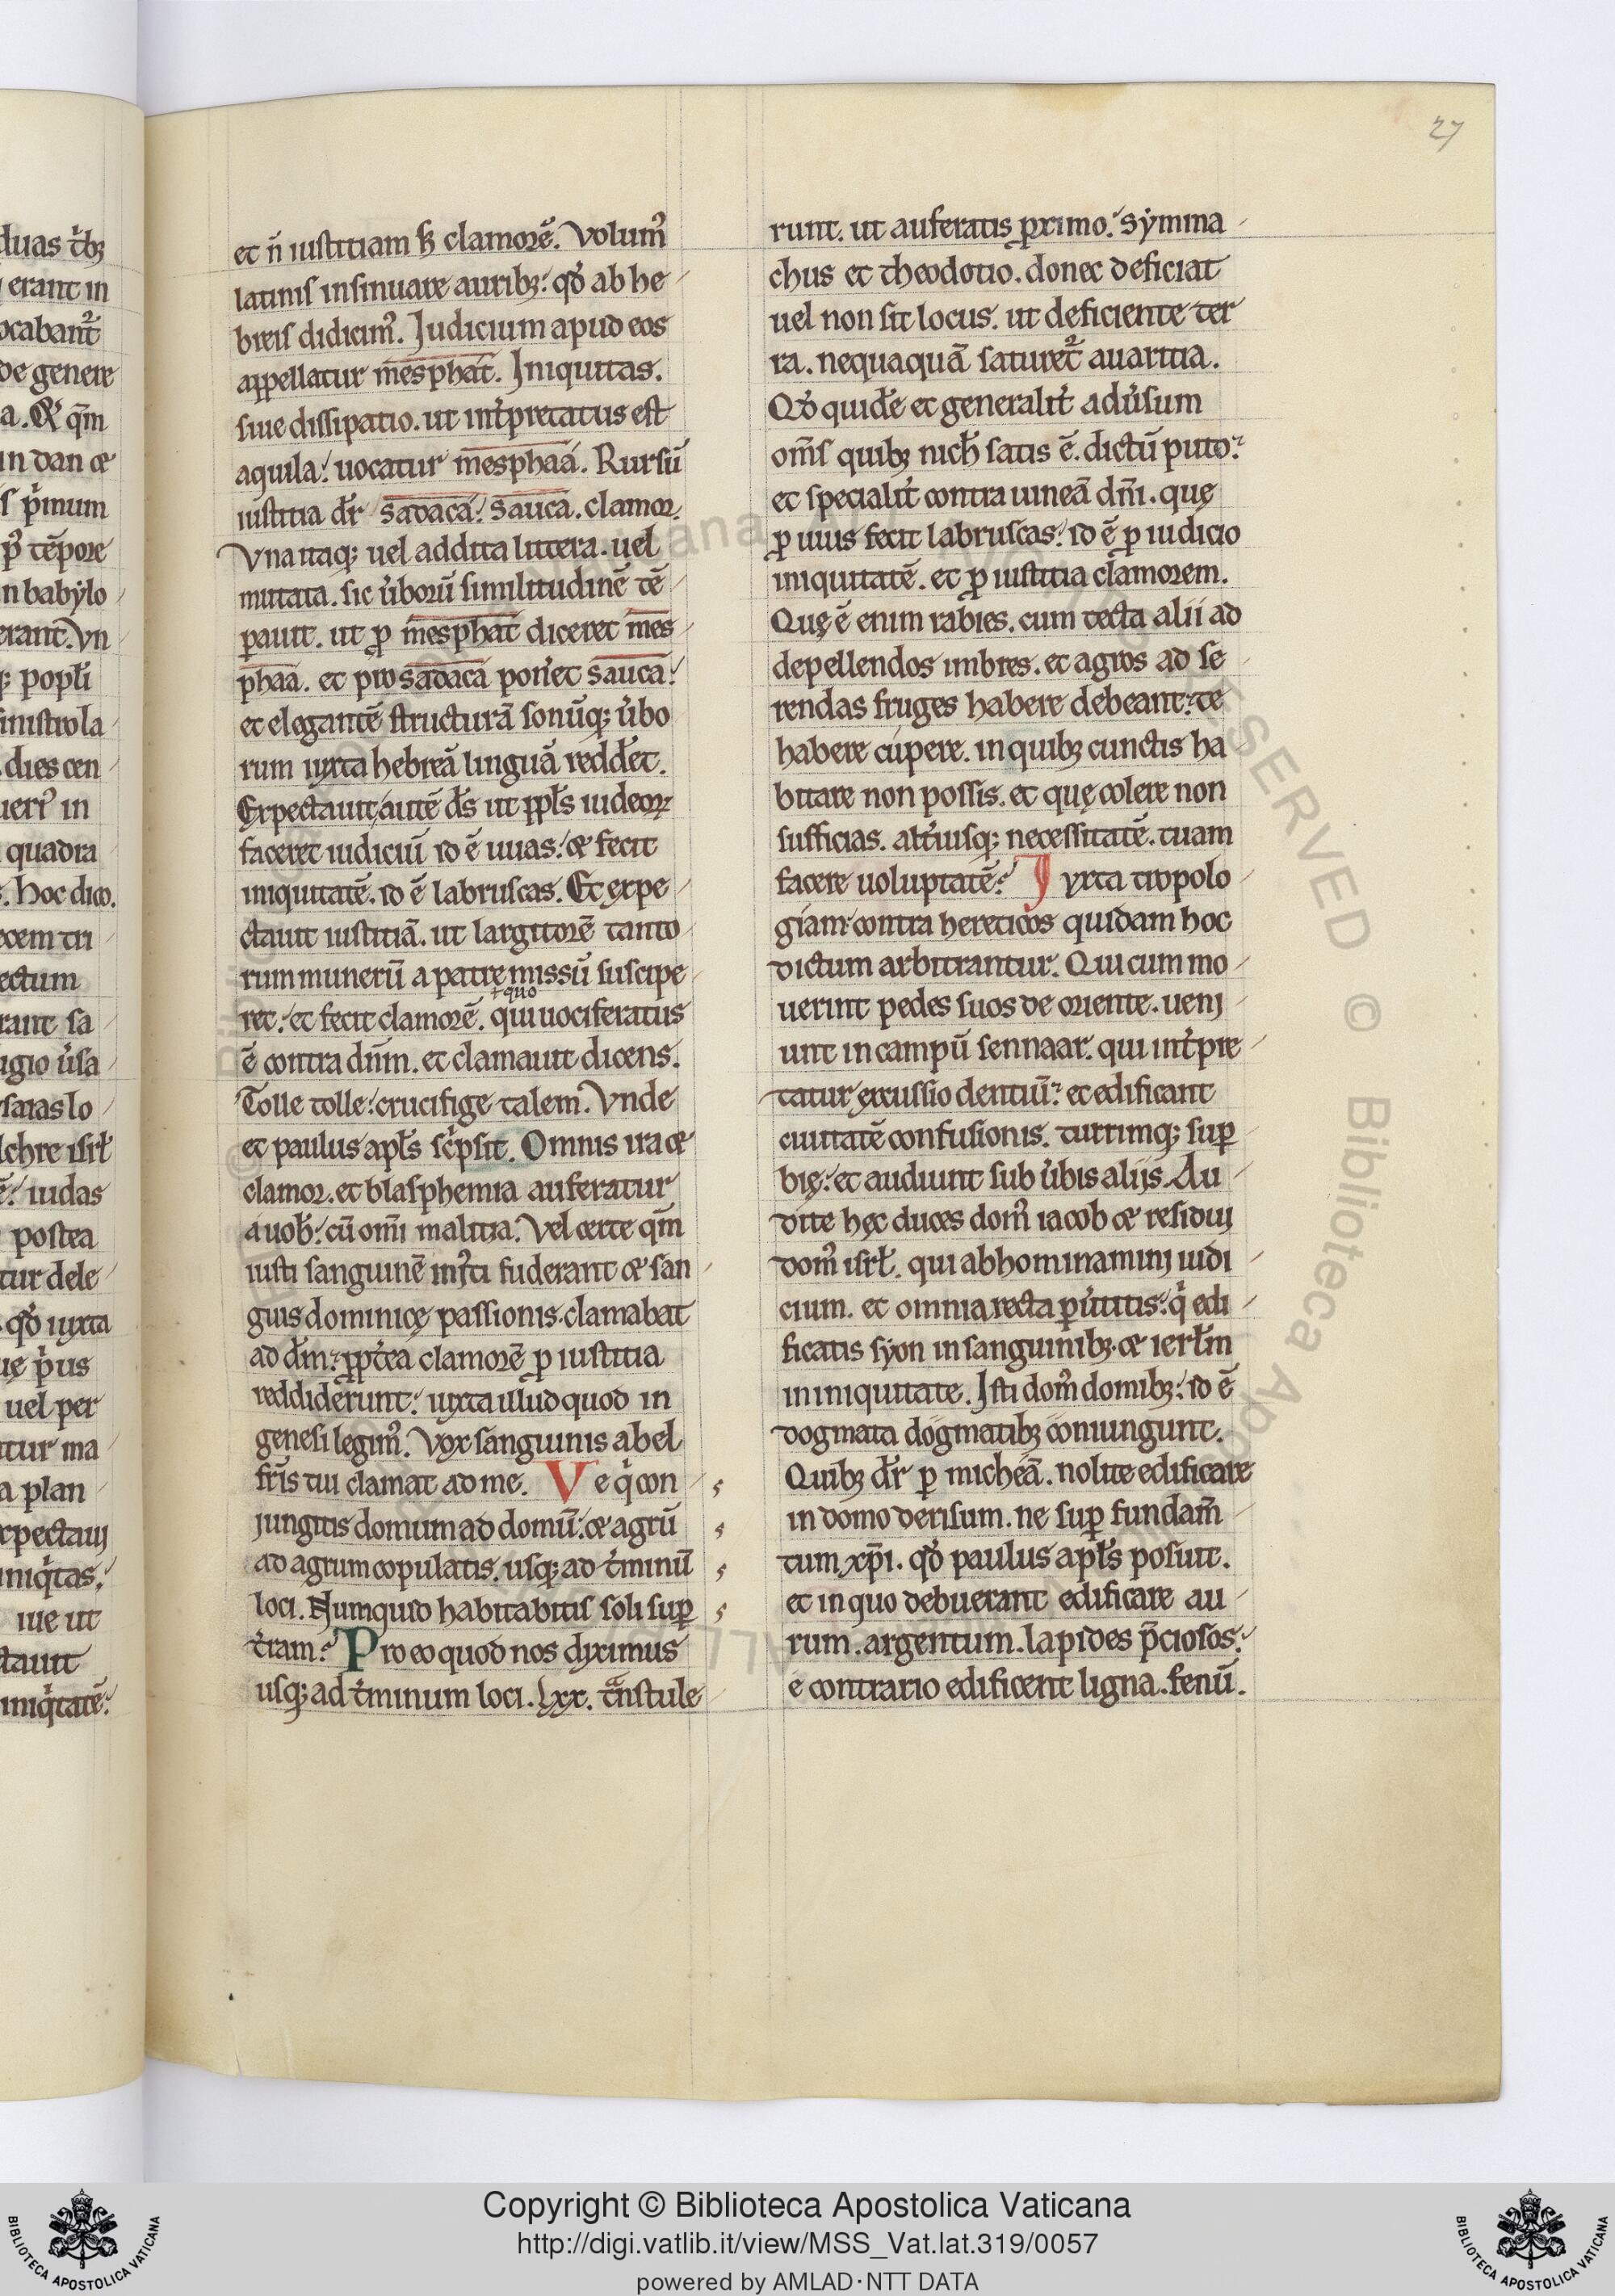 27
duas t͛bꝫ
erant in
ocabant᷑
de genere
a. Et qm̄
in dan ⁊
s p̍mum
p᷒ tēpore
n babẏlo
erant. Vn
popl̄i
sinistro la
dies cen
uer᷒ in
quadra
. hoc dico.
ecem tri
ectum
rant sa
igio u͛sa
saias lo
lchre isrl̄
iudas
postea
tur dele
qd̓ iuxta
ę p̍us
uel per
tur ma
a plan
xpectaui
iniq̍tas.
iue ut
tauit
iniq̍tatē.
et n̄ iustitiam sꝫ clamorē. Volum᷒
latinis insinuare auribꝫ: qd̓ ab he
breis didicim᷒. Judicium apud eos
appellatur mesphat. Iniquitas.
siue dissipatio. ut int͛pretatus est
aquila: uocatur mesphaa. Rursū
iustitia dr̄ sadaca: sauca. clamor.
Vna itaqꝫ uel addita littera. uel
mutata. sic u͛borū similitudinē tē
ꝑauit. ut ꝓ mesphat diceret mes
phaa. et pro sadaca pon͛et sauca:
et elegantē structurā sonūqꝫ u͛bo
rum iuxta hebreā linguā redd͛et.
Expectauit autē d̄s ut ppl̄s iudeoꝝ
faceret iudiciū id ē uuas: ⁊ fecit
iniquitatē. id ē labruscas. Et expe
ctauit iustitiā. ut largitorē tanto
rum munerū a patre missū suscipe
ł quo
ret: et fecit clamorē. qui uociferatus
ē contra dn̄m. et clamauit dicens.
Tolle tolle: crucifige talem. Vnde
et paulus apl̄s sc̍psit. Omnis ira ⁊
clamor. et blasphemia auferatur
a uob̄: cū om̄i malitia. Vel certe qm̄
iusti sanguinē iniusti fuderant ⁊ san
guis dominicę passionis. clamabat
ad dm̄: ꝓpt͛ea clamorē ꝓ iustitia
reddiderunt: iuxta illud quod in
genesi legim᷒. Vox sanguinis abel
fr̄is tui clamat ad me. Ve q̍ con
jungitis domum ad domū: ⁊ agrū
ad agrum copulatis. usqꝫ ad t͛minū
loci. Numquid habitabitis soli suꝑ
t͛ram? Pro eo quod nos diximus
usqꝫ ad t͛minum loci. lxx. tͣnstule
runt. ut auferatis ꝓximo: sẏmma
chus et theodotio. donec deficiat
uel non sit locus. ut deficiente ter
ra. nequaquā saturet᷑ auaritia.
Qd̓ quidē et generalit͛ adu͛sum
om̄s quibꝫ nich̄ satis ē. dictū puto:
et specialit͛ contra uineā dn̄i. quę
ꝓ uuis fecit labruscas: id ē ꝓ iudicio
iniquitatē. et ꝓ iustitia clamorem.
Quę ē enim rabies. cum tecta alii ad
depellendos imbres. et agros ad se
rendas fruges habere debeant: te
habere cupere. in quibꝫ cunctis ha
bitare non possis. et quę colere non
sufficias. alt͛iusqꝫ necessitatē. tuam
facere uoluptatē? Iuxta tropolo
giam contra hereticos quidam hoc
dictum arbitrantur. Qui cum mo
uerint pedes suos de oriente. ueni
unt in campū sennaar. qui int͛pre
tatur excussio dentiū: et edificant
ciuitatē confusionis. turrimqꝫ suꝑ
bię: et audiunt sub u͛bis aliis. Au
dite hęc duces dom᷒ iacob ⁊ residui
dom᷒ isrl̄. qui abhominamini iudi
cium. et omnia recta ꝑu͛titis: q̍ edi
ficatis sẏon in sanguinibꝫ ⁊ ierl̄m
in iniquitate. Isti dom᷒ domibꝫ: id ē
dogmata dogmatibꝫ coniungunt.
Quibꝫ dr̄ ꝑ micheā. nolite edificare
in domo derisum. ne suꝑ fundam̄
tum xp̄i. qd̓ paulus apl̄s posuit.
et in quo debuerant edificare au
rum. argentum. lapides p̄ciosos:
e contrario edificent ligna. fenū.
Copyright © Biblioteca Apostolica Vaticana
http://digi.vatlib.it/view/MSS_Vat.lat.319/0057
powered by AMLAD·NTT DATA
BIBLIOTECA APOSTOLICA VATICANA
BIBLIOTECA APOSTOLICA VATICANA